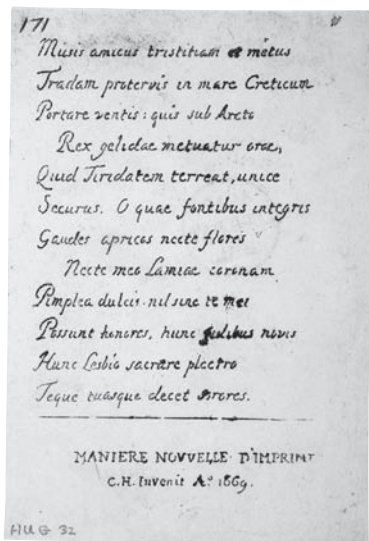 171
Musis amicus tristitiam et metus
Tradam protervis in mare Creticum
Portare ventis: quis sub Arcto
Rex gelidae metuatur orae,
Quid Tiridatem terreat, unice
Securus. O quae fontibus integris
Gaudes apricos necte flores
Necte meo Lamiae coronam
Pimplea dulcis. nil sine te mei
Possunt honores, hunc fidibus novis
Hunc Lesbio sacrare plectro
Teque tuasque decet sorores.
MANIERE NOVVELLE D'IMPRIM
C.H. Invenit Aº 1669.
HUG 32